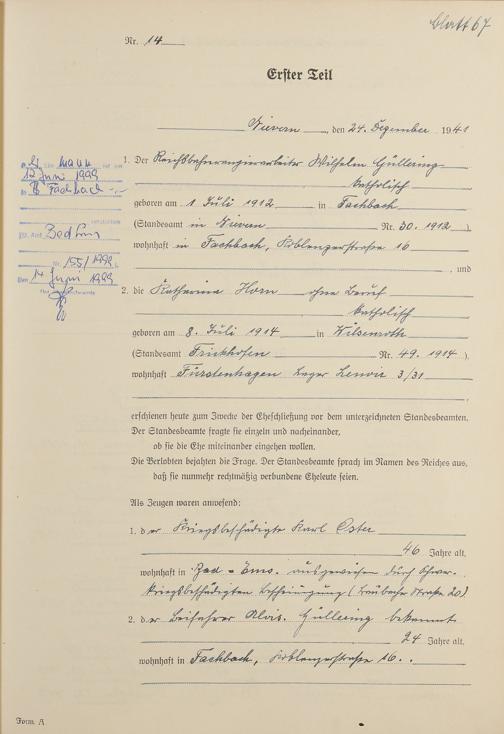 Blatt 67
Nr. 14
Erster Teil
Nievern, den 24. Dezember 1941
1. Der Reichsbahnrangierarbeiter Wilhelm Güllering
katholisch
geboren am 1. Juli 1912 in Fachbach
(Standesamt in Nievern Nr. 30. 1912)
wohnhaft in Fachbach, Koblenzerstraße 16
, und
2. die Katharina Horn ohne Beruf
katholisch
geboren am 8. Juli 1914 in Wilsenroth
(Standesamt Frickhofen Nr. 49. 1914).
wohnhaft Fürstenhagen Lager Lenoir 3/31
erschienen heute zum Zwecke der Eheschließung vor dem unterzeichneten Standesbeamten.
Der Standesbeamte fragte sie einzeln und nacheinander,
ob sie die Ehe miteinander eingehen wollen.
Die Verlobten bejahten die Frage. Der Standesbeamte sprach im Namen des Reiches aus,
daß sie nunmehr rechtmäßig verbundene Eheleute seien.
Als Zeugen waren anwesend:
1. der Kriegsbeschädigte Karl Oster
46 Jahre alt,
wohnhaft in Bad-Ems. ausgewiesen durch
kriegsbeschädigten (Straße 20)
2. der Beifahrer Alois. Güllering bekannt
24 Jahre alt,
wohnhaft in Fachbach, Koblenzerstraße 16.
12 Juni 1999
Fachbach
Nr. 155/1999
den 14 Juni 1999
Form. A